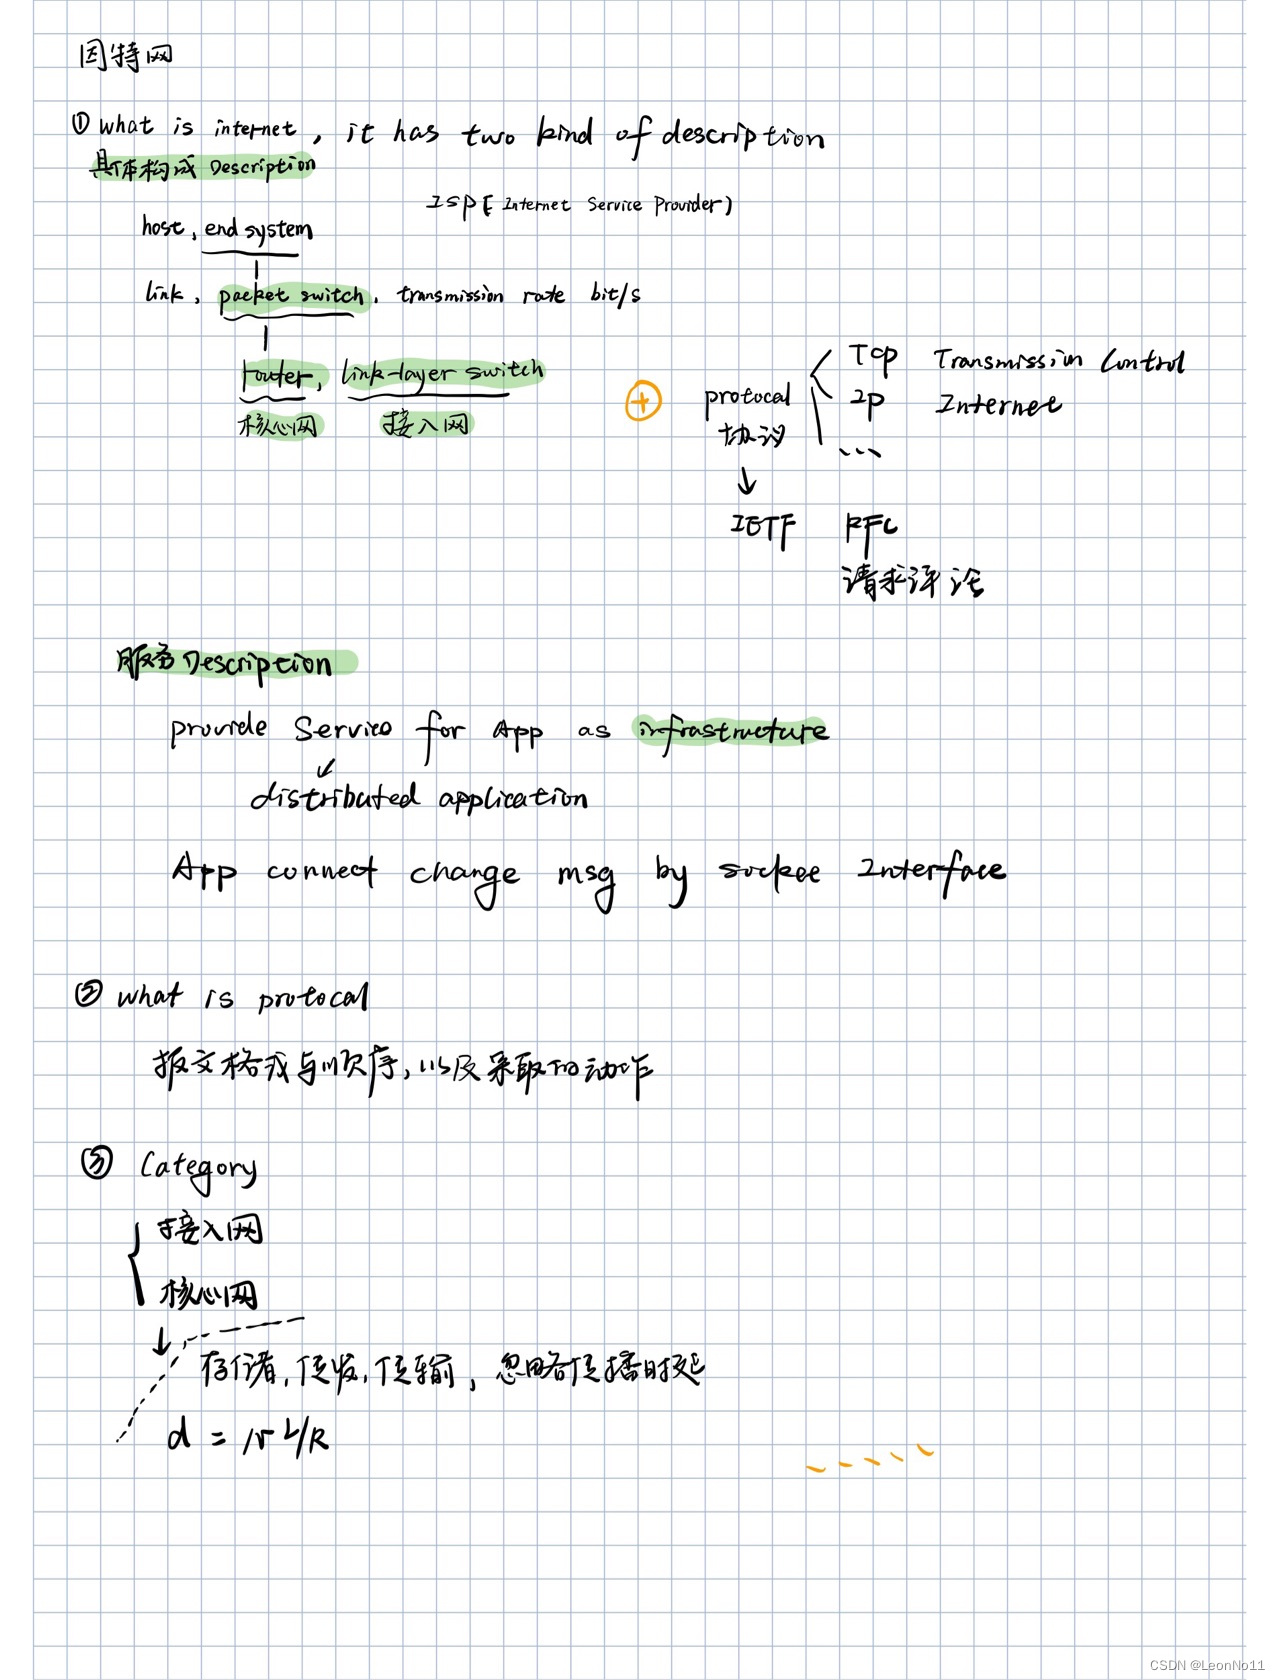 因特网
① what is internet, it has two kind of description
具体构成 Description
ISP [ Internet Service Provider )
host, end system
link, packet switch, transmission rate bit/s
router, link-layer switch
核心网 接入网
+ protocal
协议
TCP Transmission Control
IP Internet
...
IETF RFC
请求评论
服务 Description
provide Service for App as infrastructure
distributed application
App connect change msg by sockee Interface
② what is protocal
报文格式与顺序, 以及采取的动作
③ Category
接入网
核心网
存储, 传输, 忽略传播时延
d = N L/R
CSDN @LeonNo11